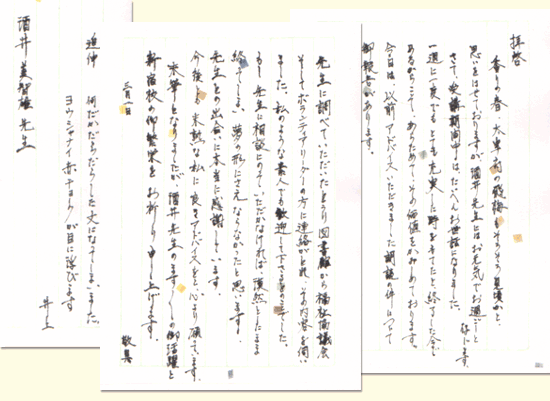 拝啓
思いをはせておりますが酒井先生にはお元気でお過ごしと
存じます。
さて、受講期間中は、たいへんお世話になりました。
一週に一度でもとても充実した時を
あらためてその価値をかみしめております。
今日は、以前アドバイスいただきました朗読の件について
御報告があります。
先生に調べていただいたとおり図書館から福祉協議会
そしてボランティアリーダーの方に連絡がとれ、その内容を伺い
ました。私のような素人でも歓迎して下さるとのことでした。
もし先生に相談にのっていただかなければ、漠然としたまま
終ってしまい、夢の形にさえならなかったと思います。
先生との出会いに本当に感謝しています。
今後とも未熟な私に良きアドバイスをと、心より願っています。
末筆となりましたが、酒井先生のますますの御活躍と
新宿校の御繁栄をお祈り申し上げます。
敬具
三月一日
追伸 何だかだらだらとした文になってしまいました。
ヨウシャナイ赤 が目に浮びます
井上
酒井 美智雄 先生